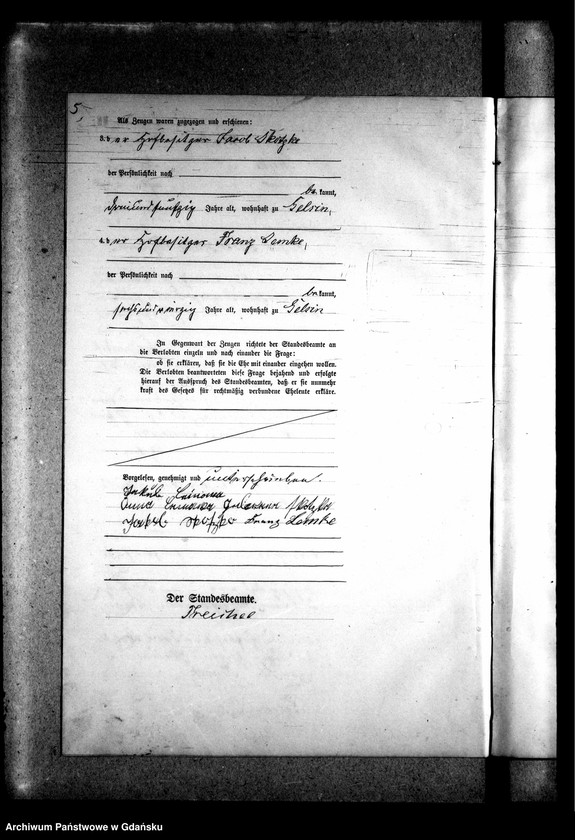 5,
Als Zeugen waren zugezogen und erschienen:
3. der Hofbesitzer Jacob Skotzke
der Persönlichkeit nach
be kannt,
dreiundfünfzig Jahre alt, wohnhaft zu Gelsin,
4. der Hofbesitzer Franz Lemke,
der Persönlichkeit nach
be kannt,
Jahre alt, wohnhaft zu Gelsin
In Gegenwart der Zeugen richtete der Standesbeamte an
die Verlobten einzeln und nach einander die Frage:
ob sie erklären, daß sie die Ehe mit einander eingehen wollen.
Die Verlobten beantworteten diese Frage bejahend und erfolgte
hierauf der Ausspruch des Standesbeamten, daß er sie nunmehr
kraft des Gesetzes für rechtmäßig verbundene Eheleute erkläre.
Vorgelesen, genehmigt und unterschrieben.
Anna
Franz Lemke
Der Standesbeamte.
Treichel
Archiwum Państwowe w Gdańsku